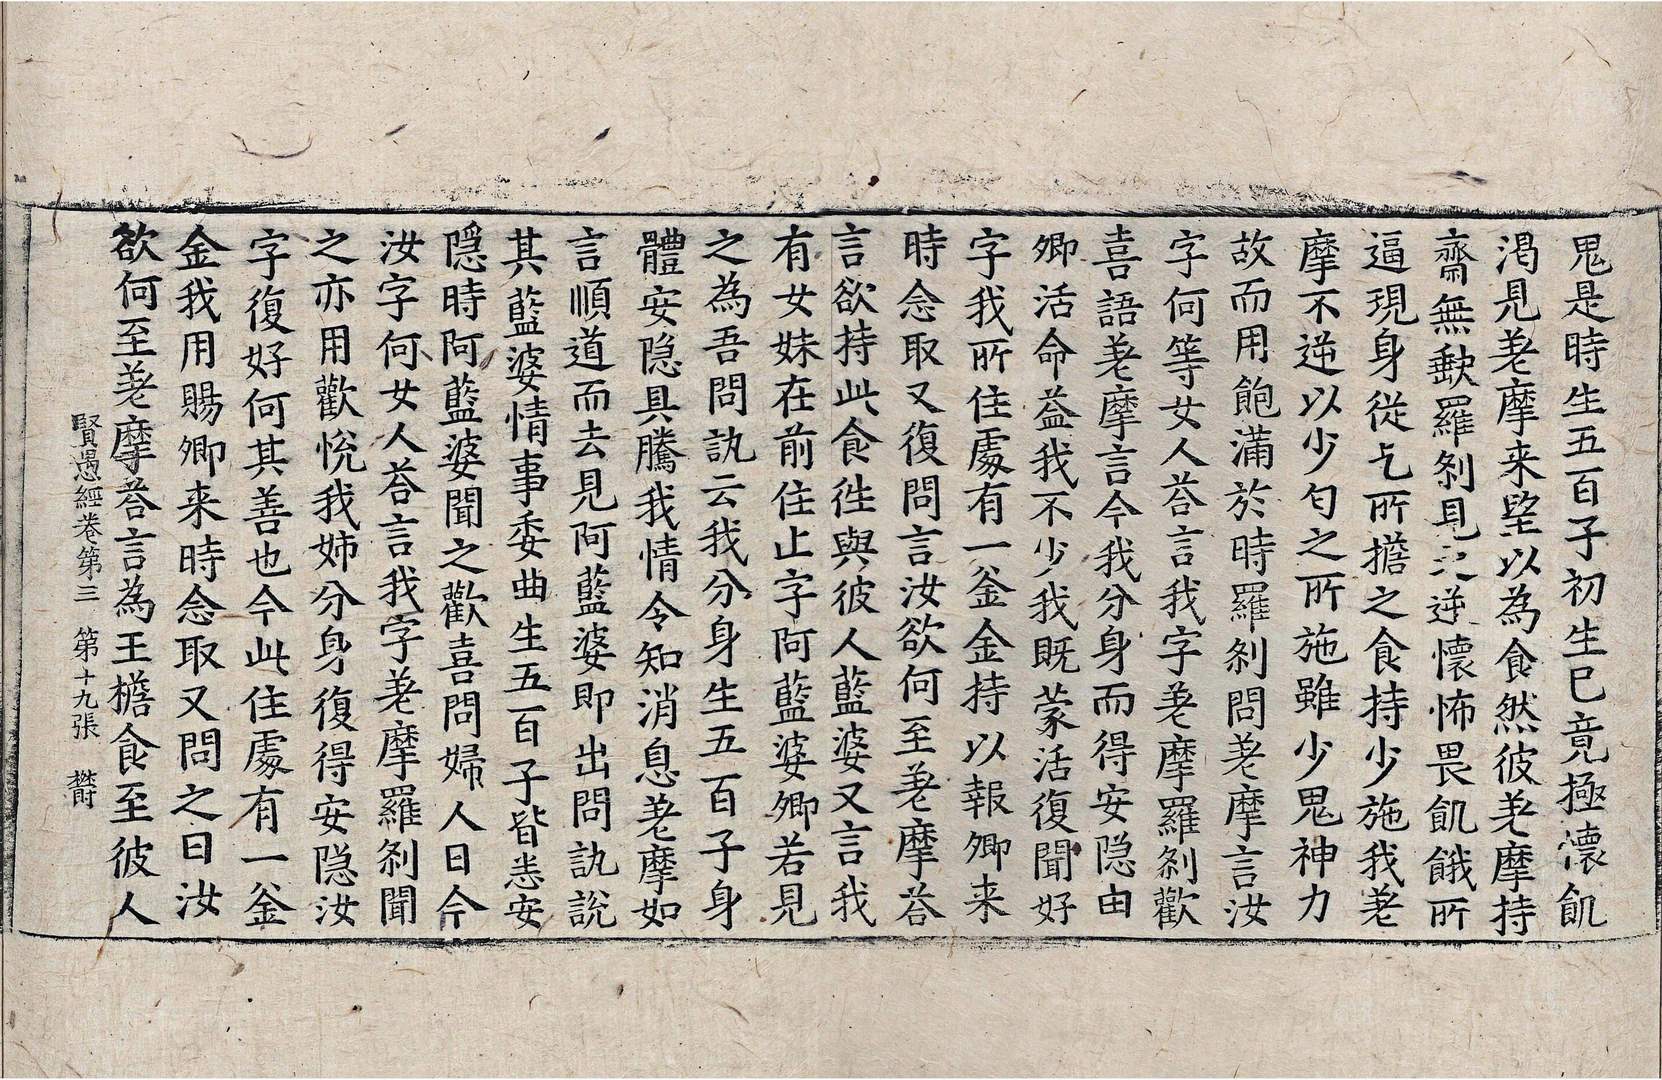 鬼是時生五百子初生已竟極懷飢
渴見羌摩来望以為食然彼羌摩持
齋無缺羅剎見之逆懷怖畏飢餓所
逼現身從乞所擔之食持少施我羌
摩不逆以少匂之所施雖少鬼神力
故而用飽滿於時羅剎問羌摩言汝
字何等女人荅言我字羌摩羅剎歡
喜語羌摩言今我分身而得安隐由
卿活命益我不少我既蒙活復聞好
字我所住處有一釜金持以報卿来
時念取又復問言汝欲何至羌摩荅
言欲持此食徃與彼人藍婆又言我
有女妹在前住止字阿藍婆卿若見
之為吾問訊云我分身生五百子身
體安隐具騰我情令知消息羌摩如
言順道而去見阿藍婆即出問訊說
其藍婆情事委曲生五百子皆悉安
隱時阿藍婆聞之歡喜問婦人曰今
汝字何女人荅言我字羌摩羅剎聞
之亦用歡悅我姊分身復得安隐汝
字復好何其善也今此住處有一釜
金我用賜卿来時念取又問之曰汝
欲何至羌摩荅言為王檐食至彼人
賢愚經卷第三 第十九張 欝